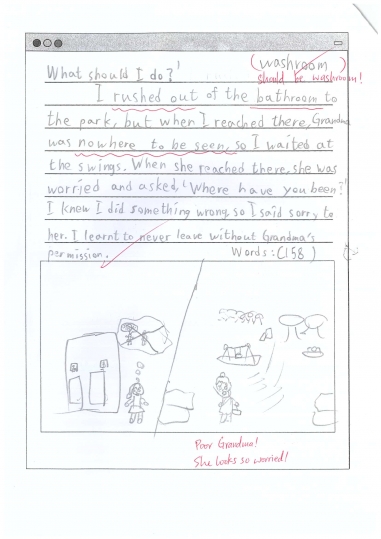 (washroom)
What should I do?'
should be washroom!
I rushed out of the bathroom to
the park, but when I reached there, Grandma
was nowhere to be seen, so I waited at
the swings. When she reached there, she was
worried and asked, 'Where have you been?'
I knew I did something wrong, so I said sorry to
her. I learnt to never leave without Grandma's
permission. Words: (158)
Poor Grandma!
She looks so worried!